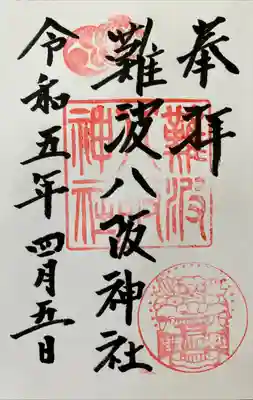 奉拝
難波八阪神社
令和五年 四月五日
難波
神社